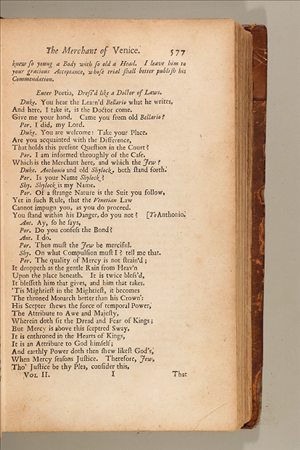 The Merchant of Venice. 577
knew so young a Body with so old a Head. I leave him to
your gracious Acceptance, whose trial shall better publish his
Commendation.
Enter Portia, Dress'd like a Doctor of Laws.
Duke. You hear the Learn'd Bellario what he writes,
And here, I take it, is the Doctor come.
Give me your hand. Came you from old Bellario?
Por. I did, my Lord.
Duke. You are welcome: Take your Place.
Are you acquainted with the Difference,
That holds this present Question in the Court?
Por. I am informed throughly of the Case.
Which is the Merchant here, and which the Jew?
Duke. Anthonio and old Shylock, both stand forth.
Por. Is your Name Shylock?
Shy. Shylock is my Name.
Por. Of a strange Nature is the Suit you follow,
Yet in such Rule, that the Venetian Law
Cannot impugn you, as you do proceed.
You stand within his Danger, do you not? [To Anthonio.
Ant. Ay, so he says,
Por. Do you confess the Bond?
Ant. I do.
Por. Then must the Jew be merciful.
Shy. On what Compulsion must I? tell me that.
Por. The quality of Mercy is not strain'd;
It droppeth as the gentle Rain from Heav'n
Upon the place beneath. It is twice bless'd,
It blesseth him that gives, and him that takes.
'Tis Mightiest in the Mightiest, it becomes
The throned Monarch better than his Crown:
His Scepter shews the force of temporal Power,
The Attribute to Awe and Majesty,
Wherein doth sit the Dread and Fear of Kings;
But Mercy is above this scepter'd Sway,
It is enthroned in the Hearts of Kings,
It is an Attribute to God himself;
And earthly Power doth then shew likest God's,
When Mercy seasons Justice. Therefore, Jew,
Tho' Justice be thy Plea, consider this,
VOL. II. I That